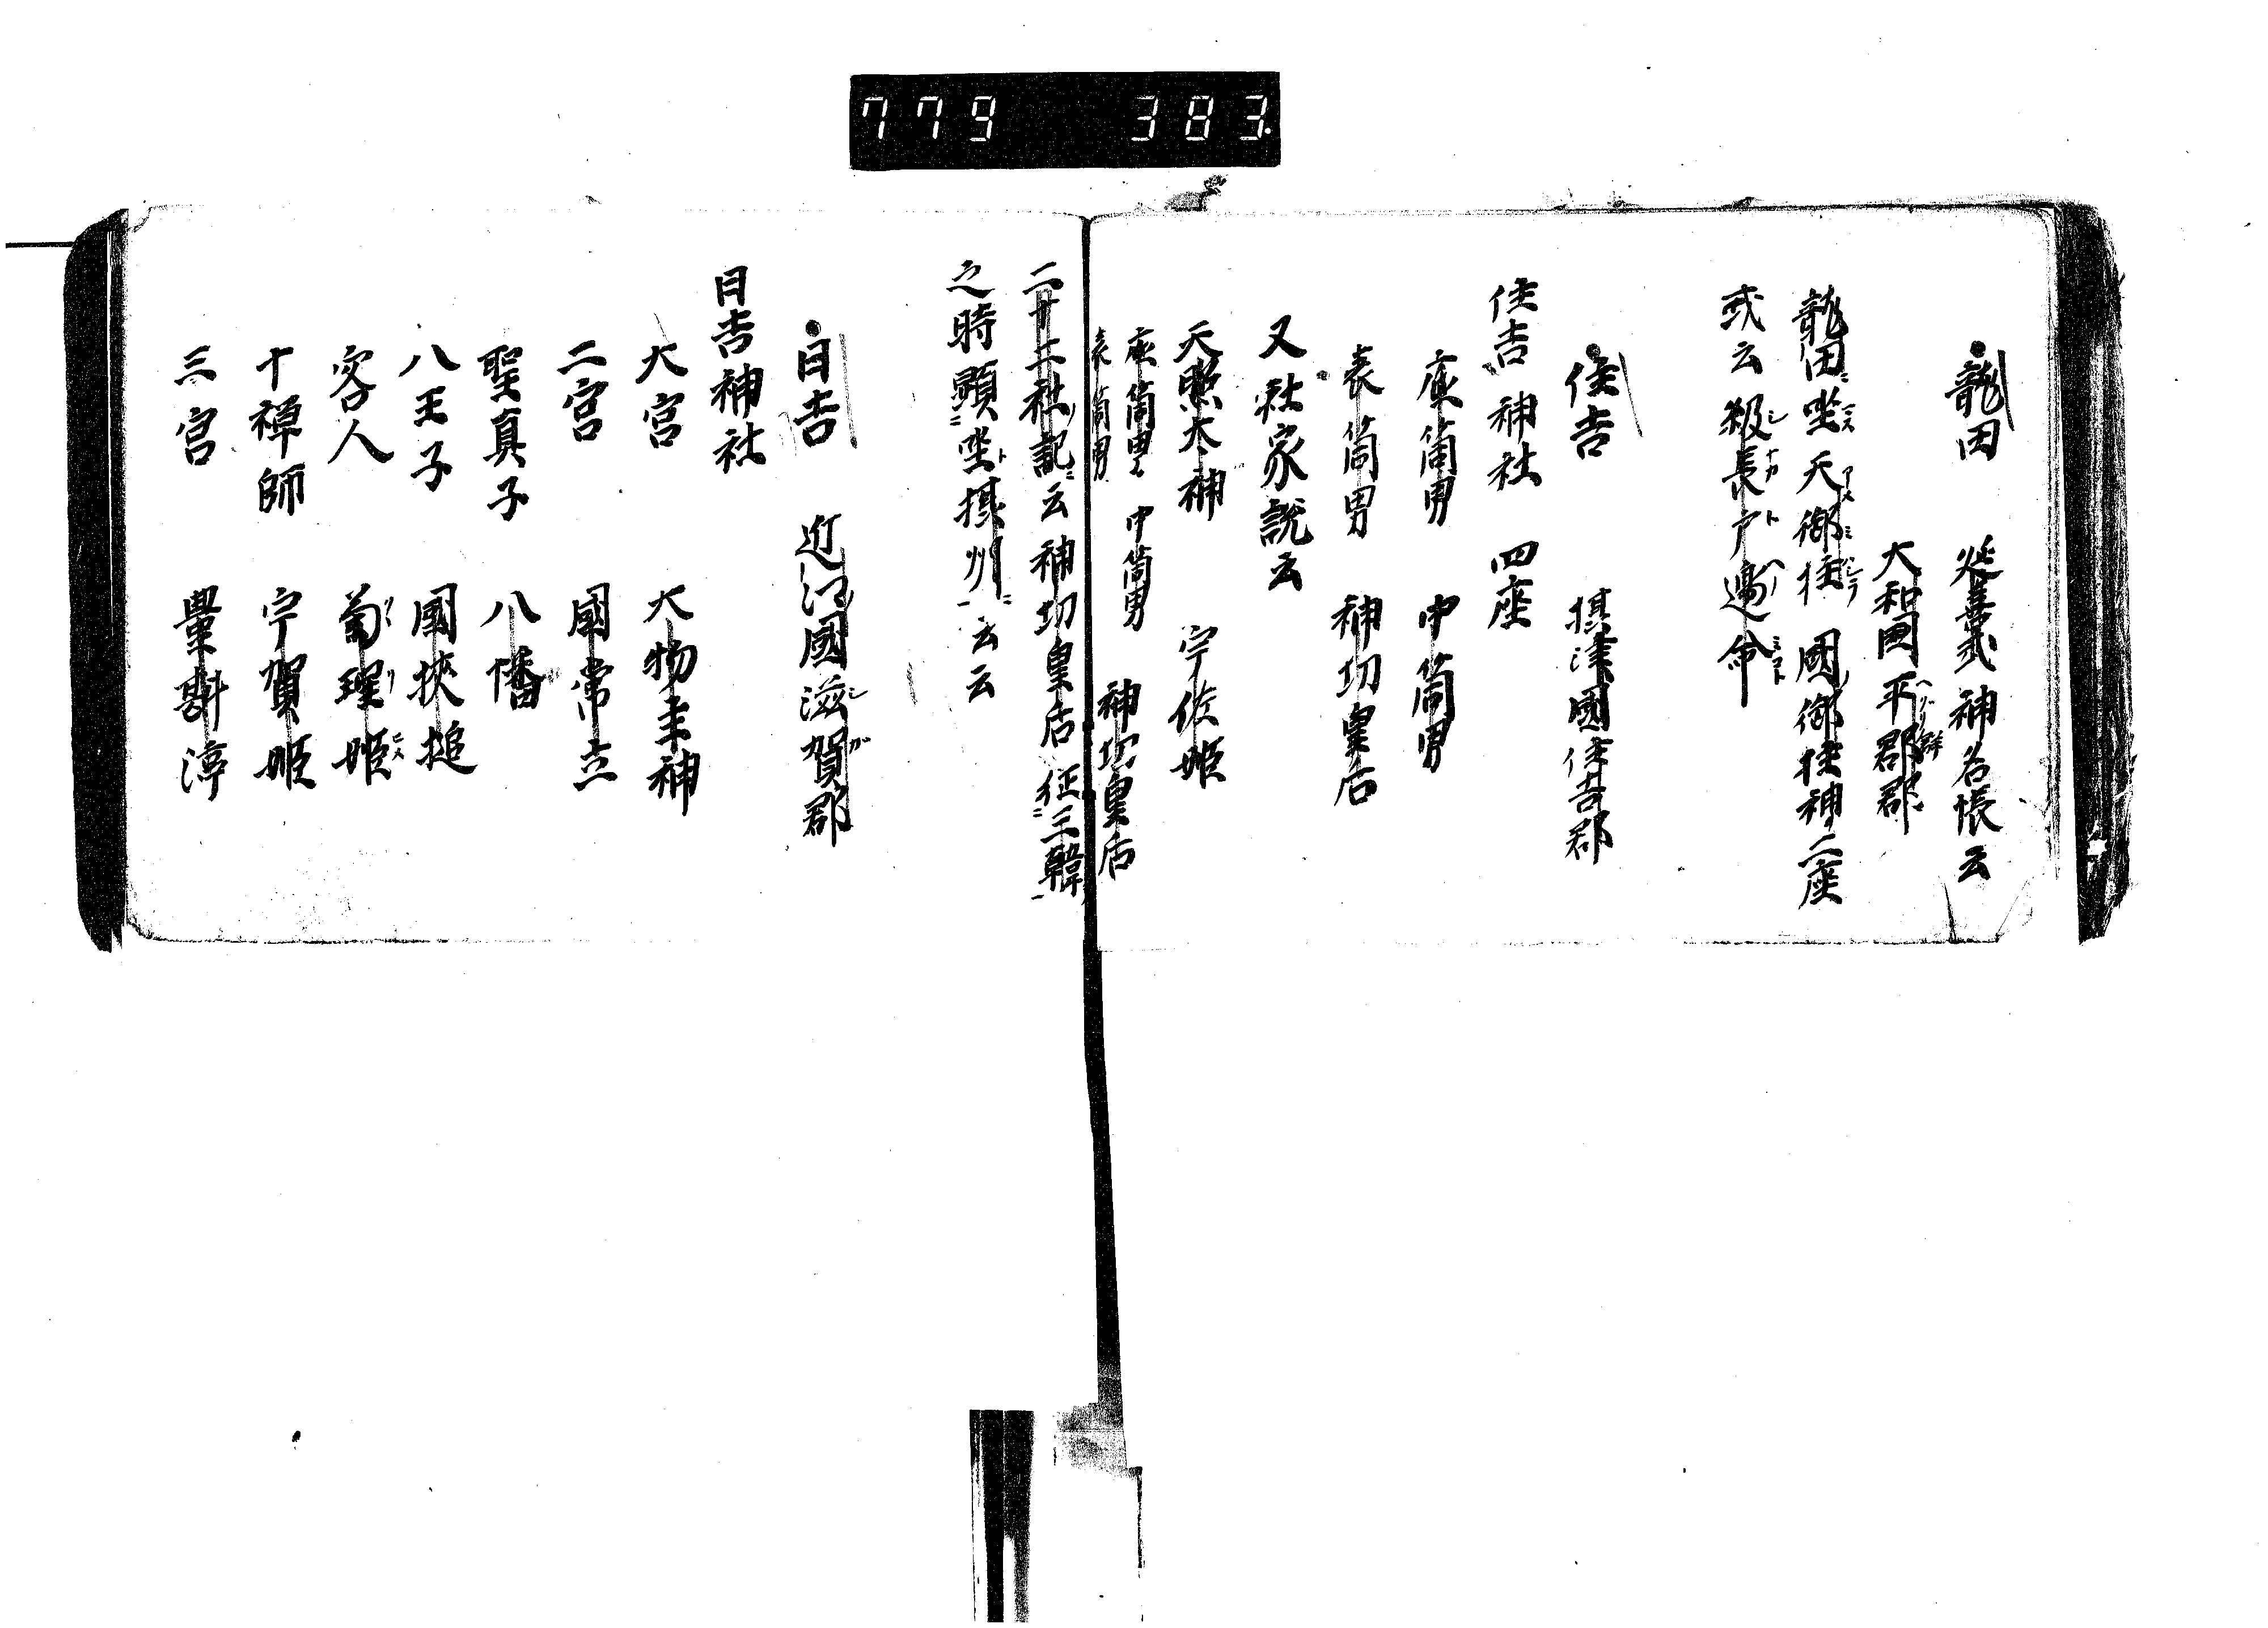 779 383
龍田 延喜式神名帳云
大和國平郡郡
龍田坐天御柱國御柱神二座
或云級長戸邊命
住吉 摂津國住吉郡
住吉神社 四座
底筒男 中筒男
表筒男 神功皇后
又社家説云
天照太神 宇佐姫
底筒男 中筒男
表筒男 神功皇后
二十二社記云神功皇后征三韓
之時顕坐摂州云云
日吉 近江國滋賀郡
日吉神社
大宮 大物主神
二宮 國常立
聖真子 八幡
八王子 國狹槌
客人 菊理姫
十禪師 宇賀姫
三宮 豊斟渟